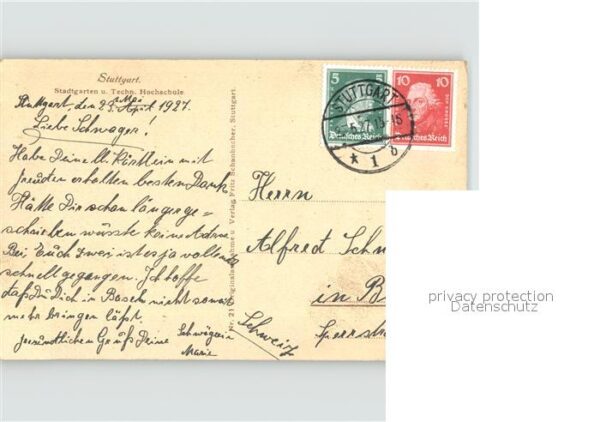 Stuttgart.
Stadtgarten u. Techn. Hochschule
Stuttgart, den 29. Mai April 1927.
Liebe Schwager!
Habe Deine lb. Kärtlein mit
freuden erhalten besten Dank,
Hätte Dir schon länger ge=
schrieben wüsste keine Adres
Bei Euch zwei ist es ja vollends
schnell gegangen. Ich hoffe
daß Du Dich in Basel nicht
mehr bringen läßt.
freundlichen Gruß Deine Schwägerin
Marie
Nr. 21 Originalaufnahme u. Verlag Fritz Schanbacher, Stuttgart.
5 5
Deutsches Reich
10 10
Deutsches Reich
STUTTGART
* 1
Herrn
Alfred Sch
in B
Sperrstr
Schweiz
privacy protection
Datenschutz